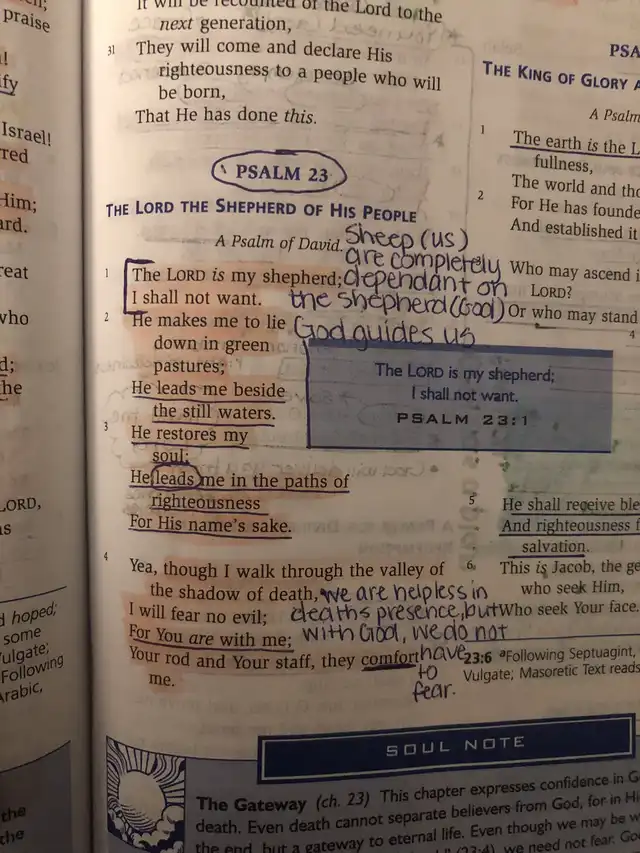 praise
fy
Israel!
red
Him;
ard.
reat
who
d;
he
LORD,
ns
d hoped;
some
ulgate;
Following
Arabic,
the
the
It will be recounted of the Lord to the
next generation,
31 They will come and declare His
righteousness to a people who will
be born,
That He has done this.
PSALM 23
THE LORD THE SHEPHERD OF HIS PEOPLE
A Psalm of David.
1 The LORD is my shepherd;
I shall not want.
Sheep (us)
are completely
dependant on
the shepherd (God)
God guides us
2 He makes me to lie
down in green
pastures;
He leads me beside
the still waters.
3 He restores my
soul;
He leads me in the paths of
righteousness
For His name's sake.
The LORD is my shepherd;
I shall not want.
PSALM 23:1
4 Yea, though I walk through the valley of
the shadow of death,
I will fear no evil;
For You are with me;
Your rod and Your staff, they comfort
me.
we are helpless in
deaths presence, but
with God, we do not
have
to
fear.
SOUL NOTE
The Gateway (ch. 23) This chapter expresses confidence in G
death. Even death cannot separate believers from God, for in Hi
the end, but a gateway to eternal life. Even though we may be w
(23:4), we need not fear. Go
PSA
THE KING OF GLORY A
A Psalm
1 The earth is the L
fullness,
The world and tho
2 For He has founde
And established it
Who may ascend i
LORD?
Or who may stand
4
5 He shall receive ble
And righteousness f
salvation.
6 This is Jacob, the ge
who seek Him,
Who seek Your face.
23:6 a Following Septuagint,
Vulgate; Masoretic Text reads